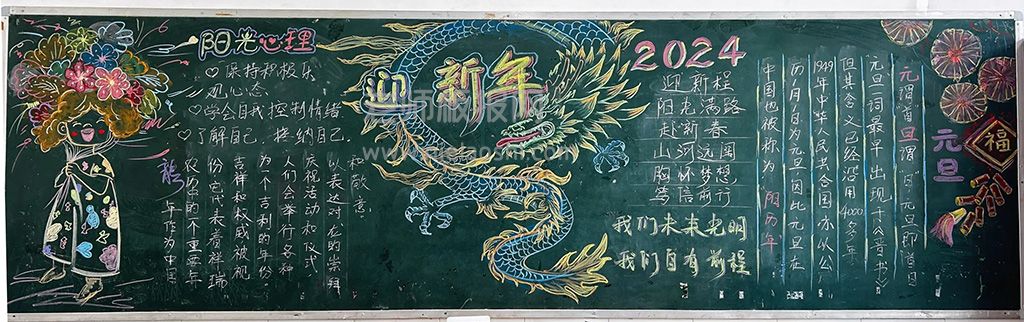 阳光心理
保持积极乐
观心态
学会自我控制情绪
了解自己，接纳自己
龙年作为中国
农历的一个重要年
份它代表着祥瑞
吉祥和权威被视
为一个吉利的年份
人们会举行各种
庆祝活动和仪式
以表达对龙的崇拜
和敬意
迎新年
2024
迎新程
阳光满路
赴新春
山河远阔
胸怀梦想
笃信前行
"我们未来光明
我们自有前程
元旦
元谓"首"旦谓"日"元旦即"首日"
元旦一词最早出现于《晋书》
但其含义已经沿用4000多年
1949年中华人民共和国以公
历1月1日为元旦因此元旦在
中国也被称为"阳历年
福